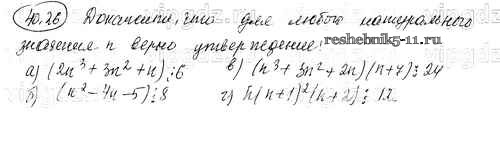 40.26 Докажите, что для любого натурального
значение n верно утверждение:
а) (2n³ + 3n² + n) ⋮ 6 в) (n³ + 3n² + 2n)(n+7) ⋮ 24
б) (n² - 4n - 5) ⋮ 8 г) n(n+1)²(n+2) ⋮ 12
reshebnik5-11.ru